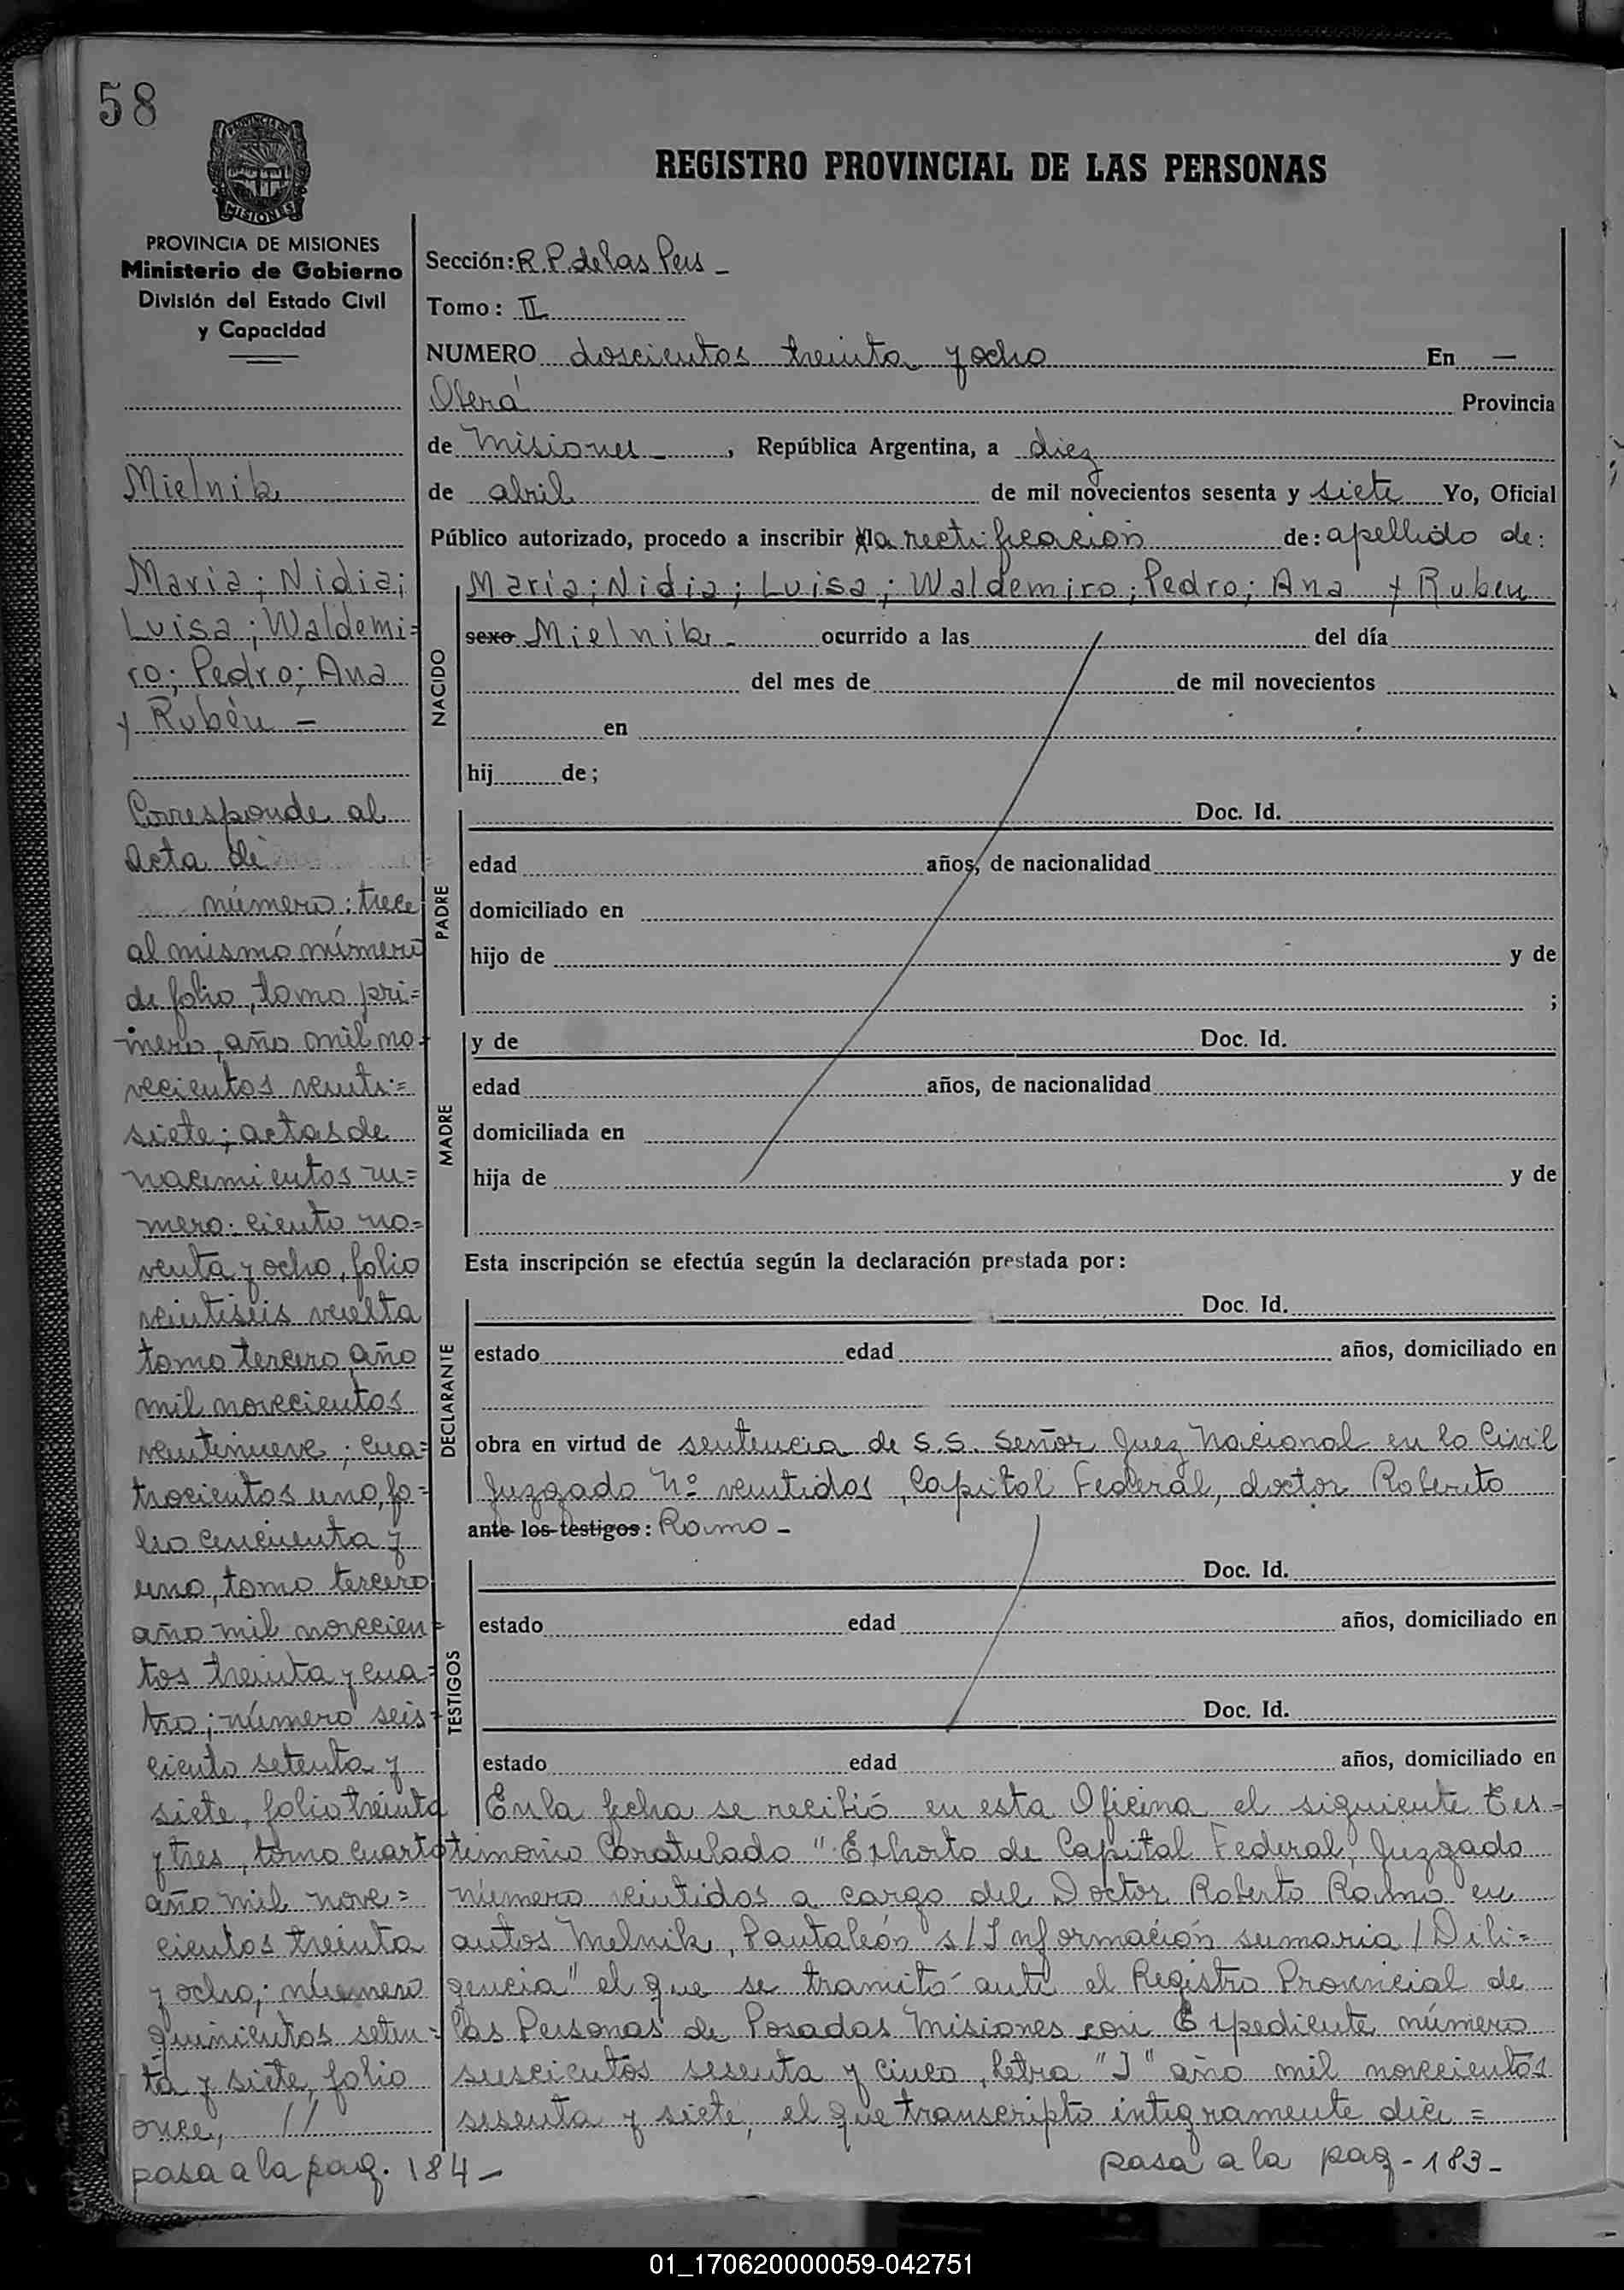 58
PROVINCIA DE
MISIONES
PROVINCIA DE MISIONES
Ministerio de Gobierno
División del Estado Civil
y Capacidad
Mielnik
María; Nidia;
Luisa; Waldemi=
ro; Pedro; Ana
y Rubén -
Corresponde al
Acta de
número: trece
al mismo número
de folio, tomo pri=
mero, año mil no=
vecientos venti=
siete; actas de
nacimientos nu=
mero: ciento no=
venta y ocho, folio
veintiseis vuelta
tomo tercero año
mil novecientos
ventinueve; cua=
trocientos uno, fo=
lio cincuenta y
uno, tomo tercero
año mil novecien=
tos treinta y cua=
tro; número seis=
ciento setenta y
siete, folio treinta
y tres, tomo cuarto
año mil nove=
cientos treinta
y ocho; número
quinientos seten=
ta y siete, folio
once, //
pasa a la pag. 184-
REGISTRO PROVINCIAL DE LAS PERSONAS
Sección: R. P. de las Pers -
Tomo: II
NUMERO doscientos treinta y ocho En —
Oberá Provincia
de Misiones -, República Argentina, a diez
de abril de mil novecientos sesenta y siete Yo, Oficial
Público autorizado, procedo a inscribir la rectificación de: apellido de:
María; Nidia; Luisa; Waldemiro; Pedro; Ana y Rubén
NACIDO
sexo Mielnik - ocurrido a las del día
del mes de de mil novecientos
en
hij de;
PADRE
Doc. Id.
edad años, de nacionalidad
domiciliado en
hijo de y de
;
MADRE
y de Doc. Id.
edad años, de nacionalidad
domiciliada en
hija de y de
Esta inscripción se efectúa según la declaración prestada por:
DECLARANTE
Doc. Id.
estado edad años, domiciliado en
obra en virtud de sentencia de S.S. Señor Juez Nacional en lo Civil
Juzgado Nº ventidos, Capital Federal, doctor Roberto
ante los testigos: Ramo -
TESTIGOS
Doc. Id.
estado edad años, domiciliado en
Doc. Id.
estado edad años, domiciliado en
En la fecha se recibió en esta Oficina el siguiente Tes=
timonio Caratulado "Exhorto de Capital Federal, Juzgado
número veintidos a cargo del Doctor Roberto Ramo en
autos Melnik, Pantaleón s/Información sumaria / Dili=
gencia" el que se tramitó ante el Registro Provincial de
las Personas de Posadas Misiones con Expediente número
seiscientos sesenta y cinco, letra "J" año mil novecientos
sesenta y siete, el que transcripto integramente dice =
pasa a la pag - 183 -
01_170620000059-042751